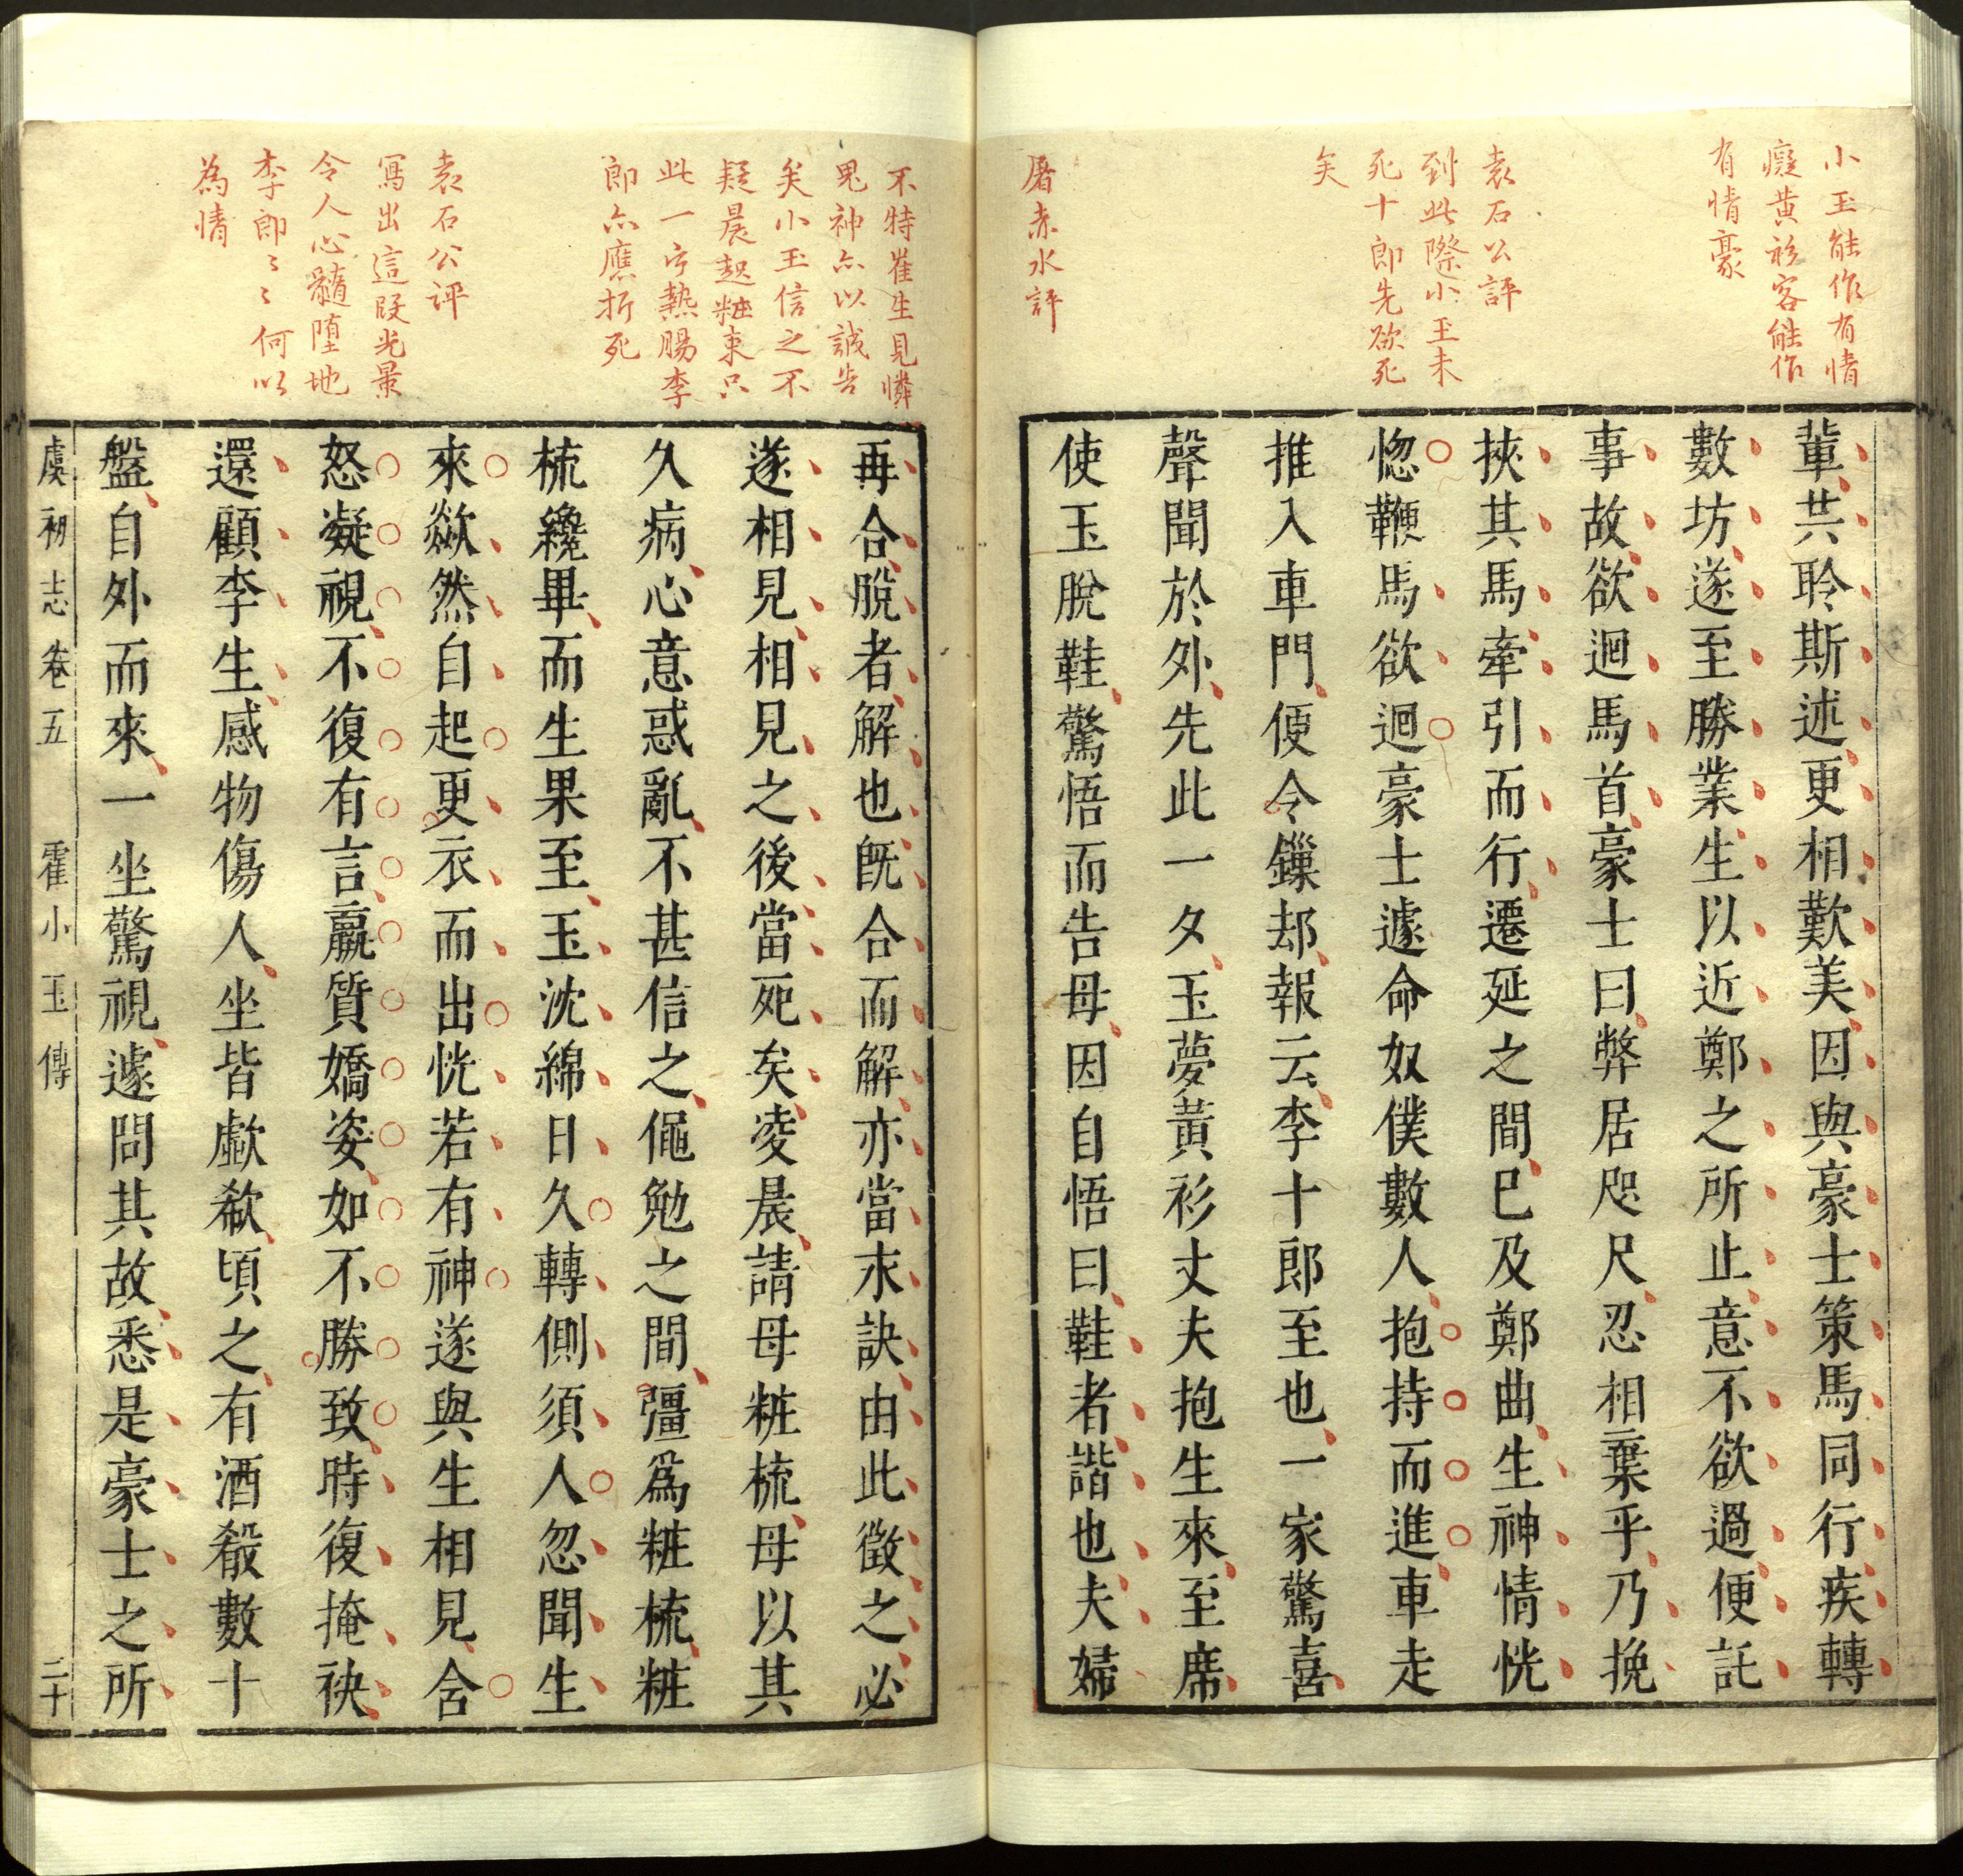 小玉能作有情
癡黄衫客能作
有情豪
袁石公評
到此際小玉未
死十郎先欲死
矣
屠赤水評
輩共聆斯述更相歎美因與豪士策馬同行疾轉
數坊遂至勝業生以近鄭之所止意不欲過便託
事故欲迴馬首豪士曰弊居咫尺忍相棄乎乃挽
挾其馬牽引而行遷延之間已及鄭曲生神情恍
惚鞭馬欲迴豪士遽命奴僕數人抱持而進車走
推入車門便令鏁却報云李十郎至也一家驚喜
聲聞於外先此一夕玉夢黃衫丈夫抱生來至席
使玉脫鞋驚悟而告母因自悟曰鞋者諧也夫婦
不特崔生見憐
鬼神亦以誠告
矣小玉信之不
疑晨起粧束只
此一宁熱腸李
郎亦應折死
袁石公評
寫出這段光景
令人心髓墮地
李郎〻〻何以
為情
再合脫者解也旣合而解亦當永訣由此徵之必
遂相見相見之後當死矣凌晨請母粧梳母以其
久病心意惑亂不甚信之僶勉之間彊爲粧梳粧
梳纔畢而生果至玉沈綿日久轉側須人忽聞生
來歘然自起更衣而出恍若有神遂與生相見含
怒凝視不復有言羸質嬌姿如不勝致時復掩袂
還顧李生感物傷人坐皆歔欷頃之有酒殽數十
盤自外而來一坐驚視遽問其故悉是豪士之所
虞初志卷五 霍小玉傳 二十